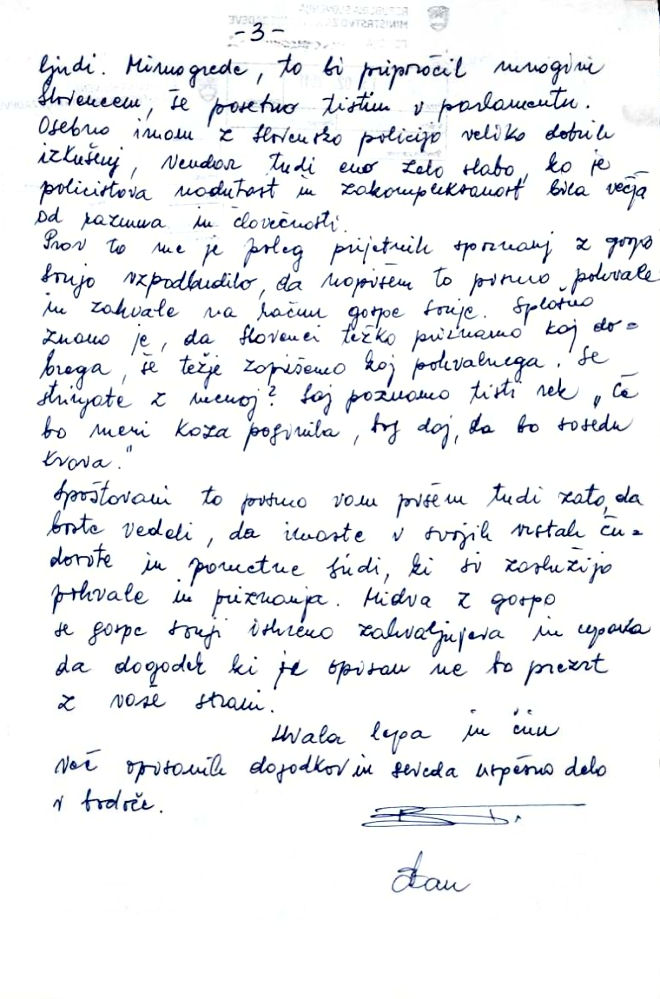 -3-
ljudi. Mimogrede, to bi priporočil mnogim
Slovencem, še posebno tistim v parlamentu.
Osebno imam z slovensko policijo veliko dobrih
izkušenj, vendar tudi eno zelo slabo, ko je
policistova nadutost in zakompleksanost bila večja
od razuma in človečnosti.
Prav to me je poleg prijetnih spoznanj z gospo
Sonjo vzpodbudilo, da napišem to pismo pohvale
in zahvale na račun gospe Sonje. Splošno
znano je, da Slovenci težko priznamo kaj do=
brega, še težje zapišemo kaj pohvalnega. Se
strinjate z menoj? Saj poznamo tisti rek „Če
bo meni koza poginila, bog daj, da bo sosedu
krava."
Spoštovani to pismo vam pišem tudi zato, da
boste vedeli, da imaste v svojih vrstah ču=
dovite in pametne ljudi, ki si zaslužijo
pohvale in priznanja. Midva z gospo
se gospe Sonji iskreno zahvaljujeva in upava
da dogodek ki je opisan ne bo prezrt
z vaše strani.
Hvala lepa in čim
več opisanih dogodkov in seveda uspešno delo
v bodoče.